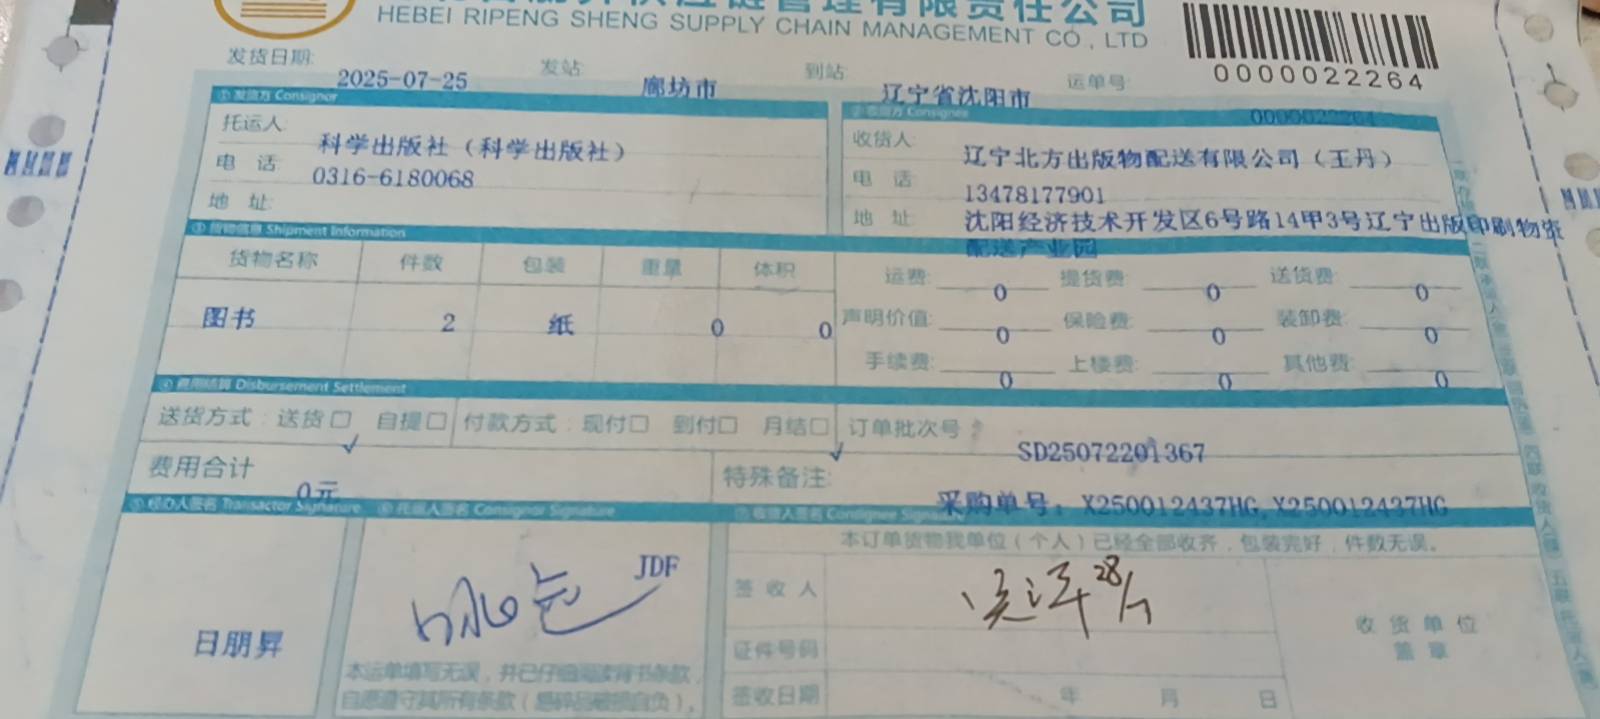 管理有限责任公司
HEBEI RIPENG SHENG SUPPLY CHAIN MANAGEMENT CO., LTD
0000022264
发货日期: 2025-07-25 发站: 廊坊市 到站: 辽宁省沈阳市 运单号:
0000022264
① 发货方 Consignor
② 收货方 Consignee
托运人: 科学出版社（科学出版社）
电 话: 0316-6180068
地 址:
收货人: 辽宁北方出版物配送有限公司（王丹）
电 话: 13478177901
地 址: 沈阳经济技术开发区6号路14甲3号辽宁出版印刷物资
配送产业园
③ 货物信息 Shipment Information
货物名称 件数 包装 重量 体积
图书 2 纸 0 0
运费: 0 提货费: 0 送货费: 0
声明价值: 0 保险费: 0 装卸费: 0
手续费: 0 上楼费: 0 其他费: 0
④ 费用结算 Disbursement Settlement
送货方式: 送货□ ✓ 自提□ 付款方式: 现付□ 到付□ 月结□ ✓ 订单批次号: SD25072201367
费用合计 0元
特殊备注: 采购单号: X250012437HG, X250012437HG
⑤ 经办人签名 Transactor Signature
⑥ 托运人签名 Consignor Signature
⑦ 收货人签名 Consignee Signature
日朋昇
JDF
本运单填写无误，并已仔细阅读背书条款，
自愿遵守其所有条款（易碎品破损自负）。
本订单货物我单位（个人）已经全部收齐，包装完好，件数无误。
签 收 人 28/7
证件号码
签收日期 年 月 日
收 货 单 位
盖 章